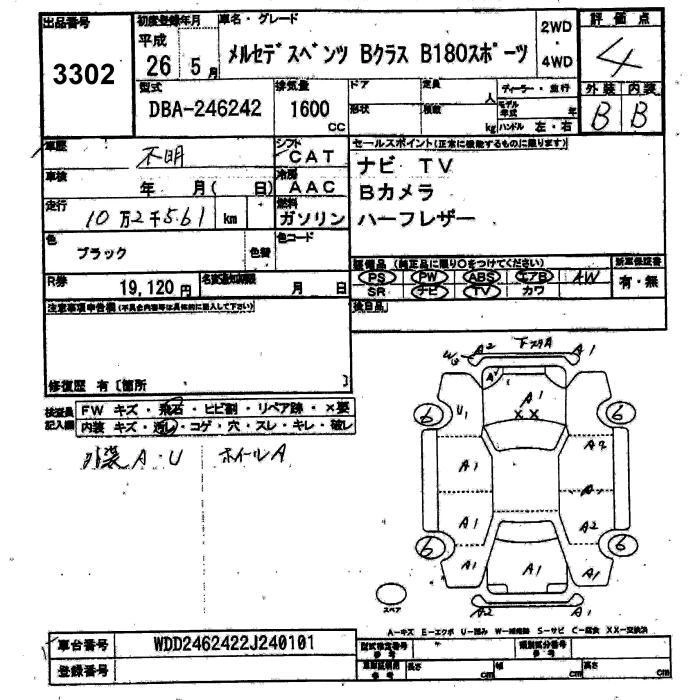 出品番号 初度登録年月 車名・グレード 2WD 評価点
3302 平成 26 5月 メルセデスベンツ Bクラス B180スポーツ ・ 4WD 4
型式 排気量 ドア 定員 ディーラー・並行 外装 内装
DBA-246242 1600 cc 形状 積数 人 kg モデル年式 年 ハンドル 左・右 B B
車歴 不明 シフト CAT セールスポイント(正常に機能するものに限ります)
車検 年 月( 日) 冷房 AAC ナビ TV
走行 10万2千561 km 燃料 ガソリン Bカメラ
ハーフレザー
色 ブラック 色替 色コード
装備品 (純正品に限り○をつけてください) 新車保証書
R券 19,120円 名変通知期限 月 日 PS PW ABS エアB AW 有・無
SR ナビ TV カワ
注意事項申告欄(不具合内容等は具体的に記入して下さい) 後日品
修復歴 有〔箇所 〕
検査員記入欄 FW キズ・飛石・ヒビ割・リペア跡・×要
内装 キズ・汚レ・コゲ・穴・スレ・キレ・破レ
外装 A・U ホイールA
A2 下スリA A1
W
A
A1
XX
6 U1 6
A1 A2
A1 A2
6 6
A1 A1 A1
スペア A2 A1
A-キズ E-エクボ U-凹み W-補修跡 S-サビ C-腐食 XX-交換済
車台番号 WDD2462422J240101 型式指定番号 参考 類別区分番号 参考
登録番号 車両諸元 参考 長さ cm 幅 cm 高さ cm